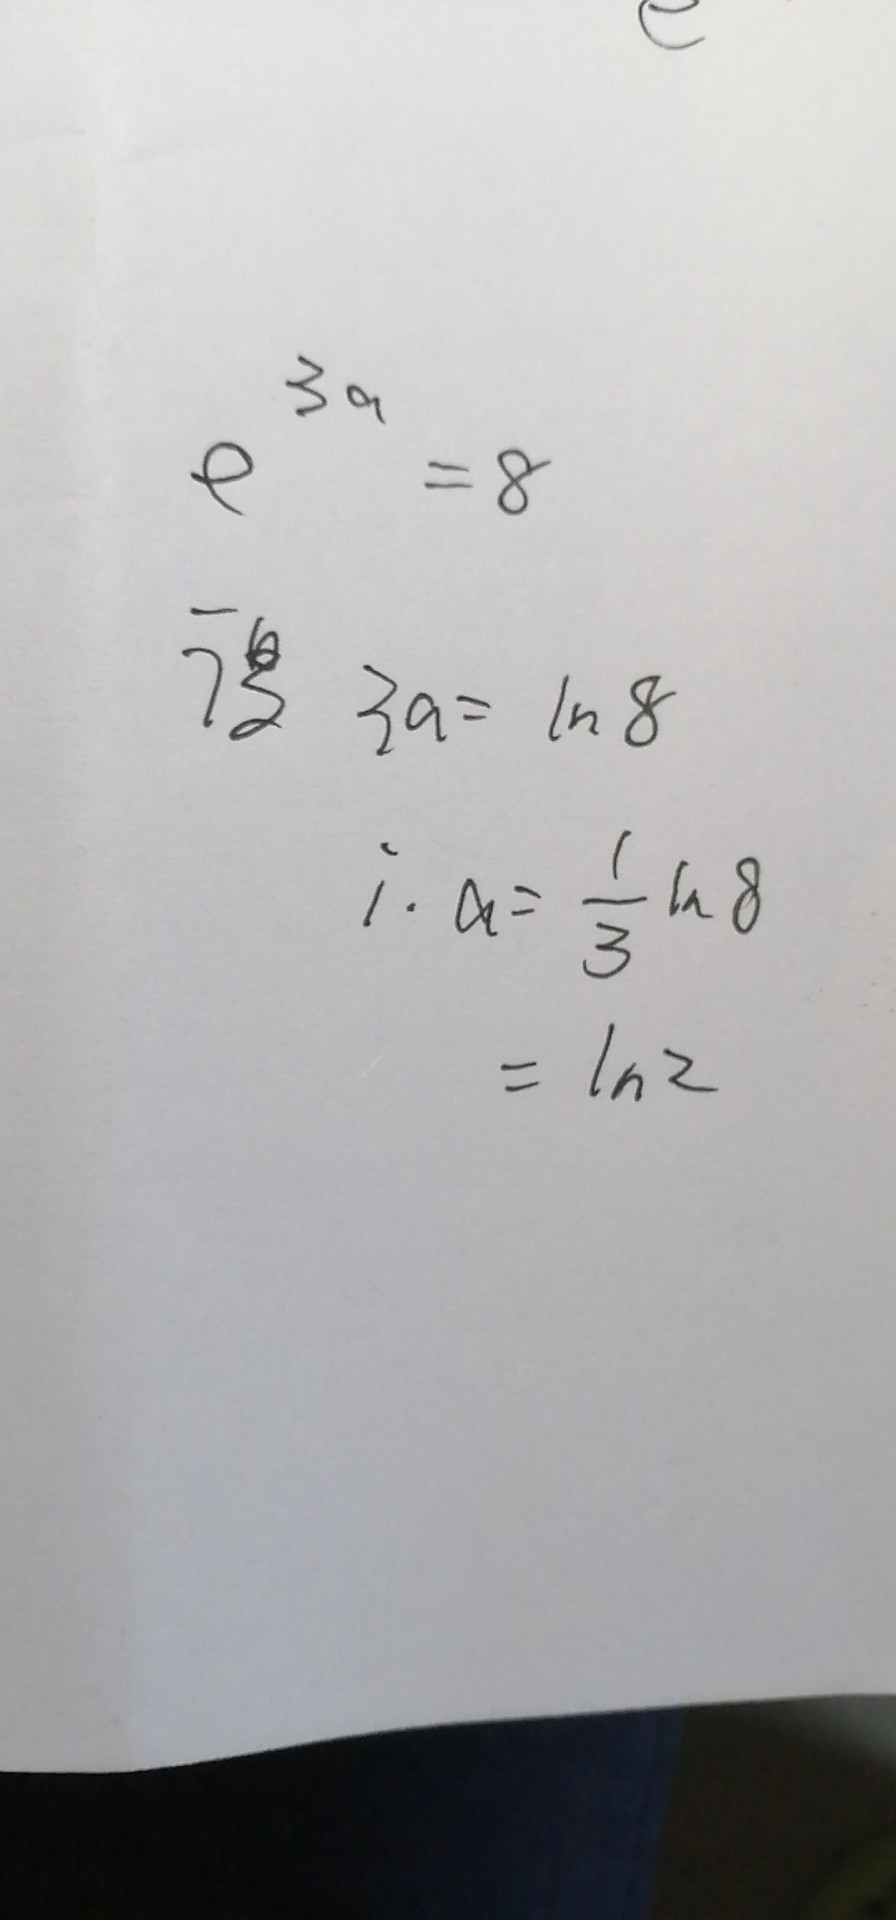 e
e^{3a} = 8
3a = ln 8
i. a = \frac{1}{3} ln 8
= ln 2